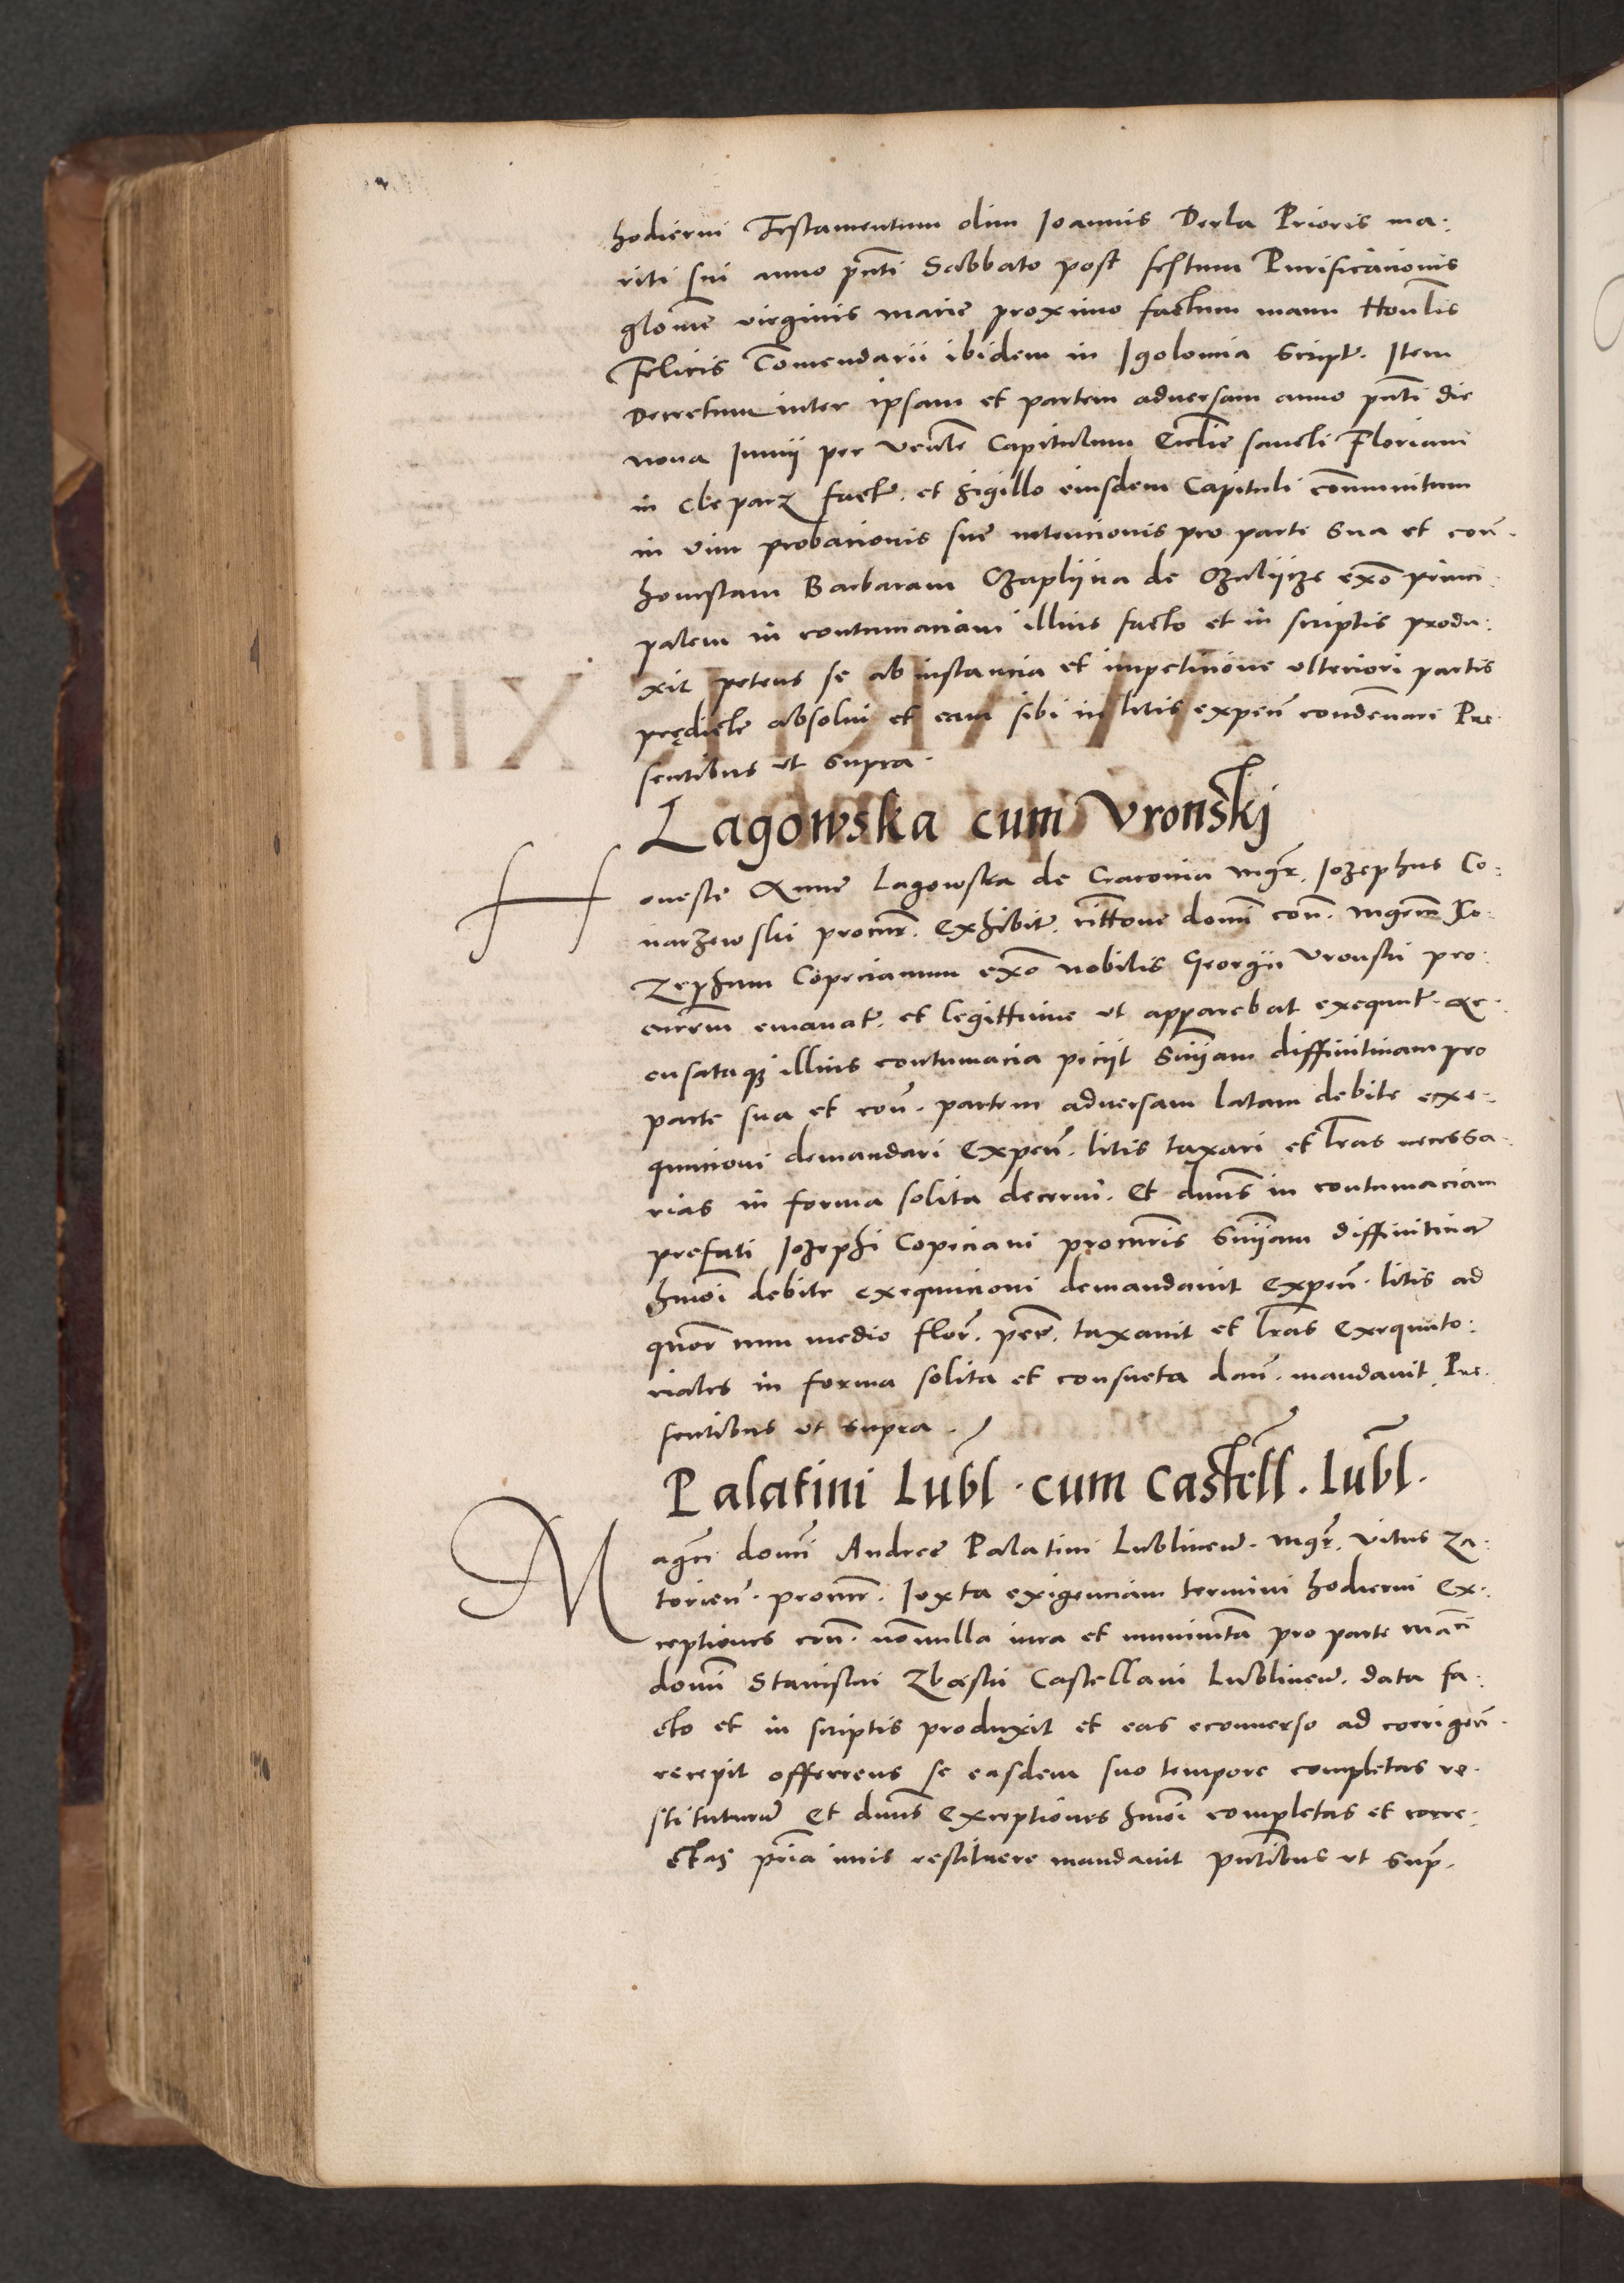 hodierni Testamentum olim Joannis Derla Prioris ma-
riti sui anno pnti Sabbato post festum Purificacionis
glome virginis marie proximo factum manu Honlis
Felicis Comendarii ibidem in Igolomia script. Item
Decretum inter ipsam et partem adversam anno pnti die
nona Junij per Venle Capitulum Ecclie sancti Floriani
in Cleparz fact. et sigillo eiusdem Capituli communitum
in vim probacionis sue intencionis pro parte sua et con
honestam Barbaram Czaplijna de exo princi
palem in contumaciam illius facto et in scriptis produ:
xit petens se ab instancia et impeticione ulteriori partis
prędicte absolui et eam sibi in litis expen condenari Pre
sentibus ut supra.
Lagowska cum Vronskj
Honeste Anne Lagowska de Cracovia mgr. Jozephus Co:
narzewski procur. Exhibit. cittone domi con. mgrm Jo:
zephum Copecianum exo nobilis Georgii Vronski pro:
curem emanat. et legittime ut apparebat exequut. Ac
cusataq illius contumacia peciit Sniiam diffinitivam pro
parte sua et con. partem adversam latam debite exe:
qucioni demandari Expen. litis taxari et lras necessa
rias in forma solita decerni. Et dnus in contumaciam
prefati Jozephi Copeciani procuris Sniiam diffinitiva
hmoi debite exequucioni demandavit Expen. litis ad
quor cum medio flor. pec. taxavit et lras Exequuto:
riales in forma solita et consueta dan. mandavit Pre.
sentibus ut supra.
Palatini Lubl. cum Castell. Lubl.
Magci domi Andree Palatini Lublinen. mgr. Vitus Za:
torien. procur. Juxta exigenciam termini hodierni Ex:
ceptiones con. nonnulla iura et munimta pro parte maci
domi Stanislai Zbaski Castellani Lublinen. data fa:
cto et in scriptis produxit et eas econverso ad corrigen
recepit offerens se easdem suo tempore completas re
stiturum Et dnus Exceptiones hmoi completas et corre:
ctas pria iuris restituere mandavit pntibus ut sup.